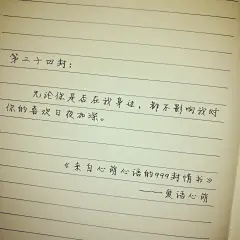 第二十四封：
无论你是否在我身边，都不影响我对
你的喜欢日夜加深。
《来自心萌心话的999封情书》
——爱话心萌